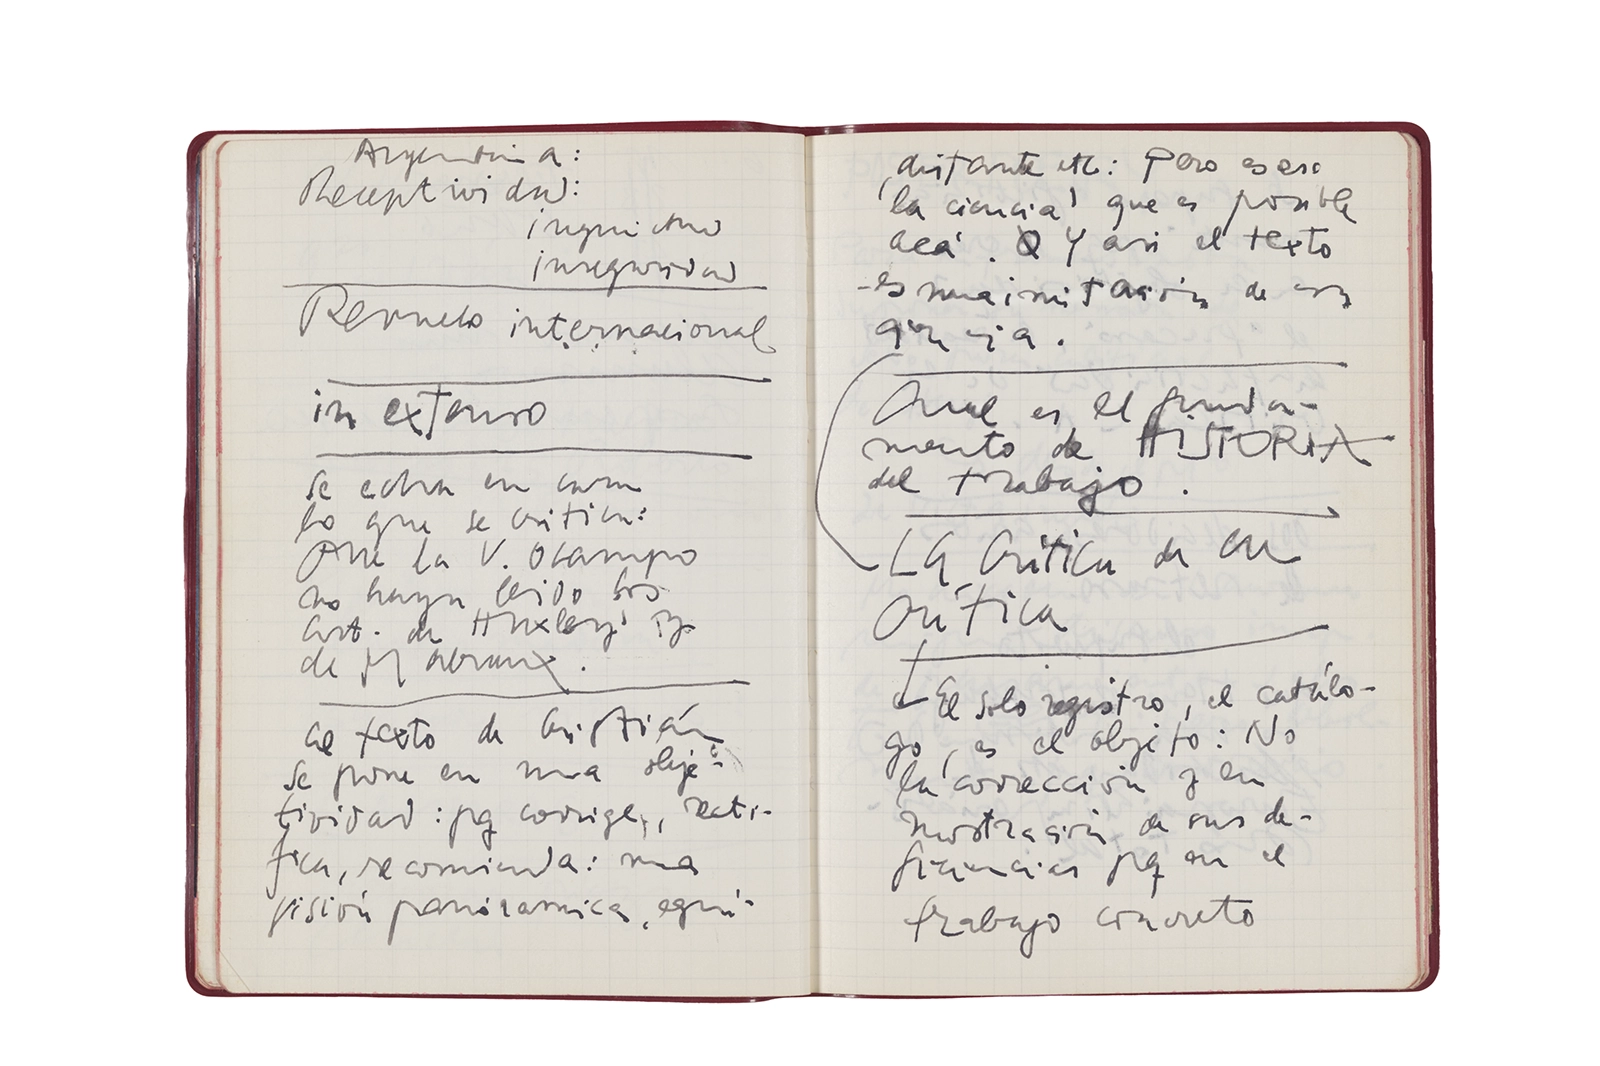 Argentina:
Receptividad:
inquietud
inseguridad
Revuelo internacional
in extenso
Se echa en cara
lo que se critica:
Que la V. Ocampo
no haya leído los
art. de Huxley y
de Malraux.
El texto de Cristián
se pone en una obje-
tividad: pq corrige, recti-
fica, recomienda: una
visión panorámica, equi-
distante etc: Pero es esa
'la ciencia' que es posible
acá. Y así el texto
es una imitación de
Cual es el funda-
mento de HISTORIA
del trabajo.
LA crítica de
crítica
El solo registro, el catálo-
go, es el objeto: No
la corrección y la
mostración de sus de-
ficiencias pq en el
trabajo concreto